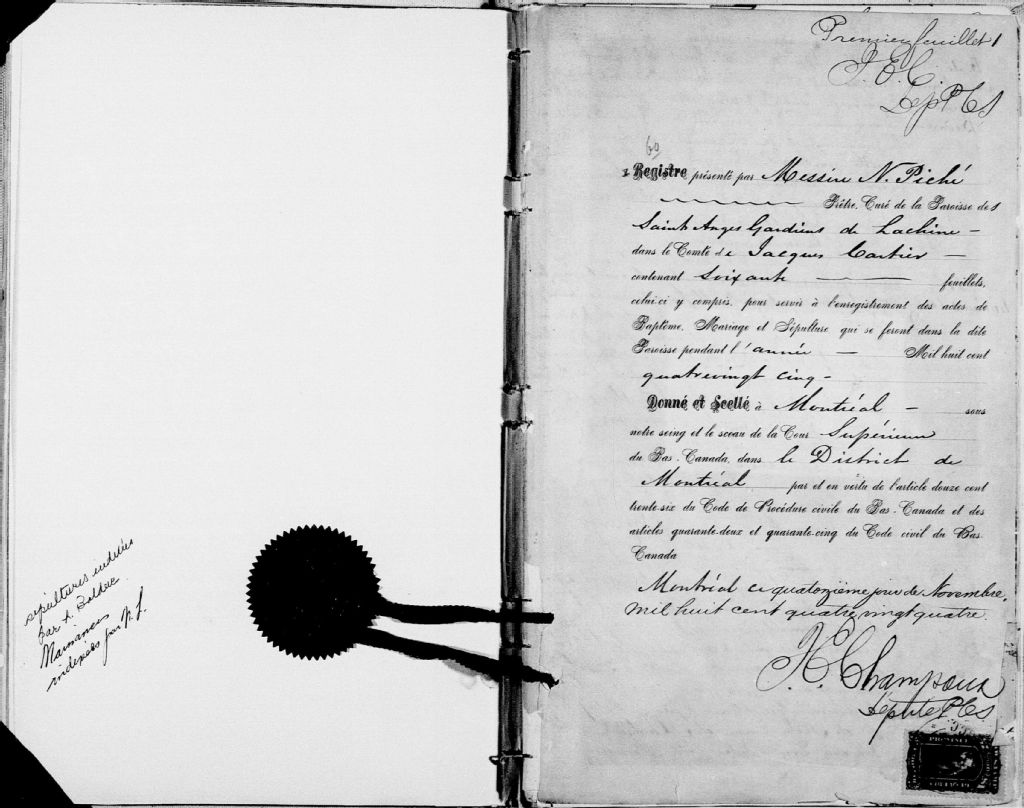 sépultures indexées
par A. Bolduc
Naissances
indexées par N. L.
Premier feuillet
J. E. C.
Dep P C S
60
Registre présenté par Messire N. Piché
Prêtre, Curé de la Paroisse des
Saints Anges Gardiens de Lachine -
dans le Comté de Jacques Cartier -
contenant Soixante feuillets,
celui-ci y compris, pour servir à l'enregistrement des actes de
Baptême, Mariage et Sépulture qui se feront dans la dite
Paroisse pendant l'année - Mil huit cent
quatrevingt cinq -
Donné et Scellé à Montréal - sous
notre seing et le sceau de la Cour Supérieure
du Bas-Canada, dans le District de
Montréal par et en vertu de l'article douze cent
trente-six du Code de Procédure civile du Bas-Canada et des
articles quarante-deux et quarante-cinq du Code civil du Bas
Canada
Montréal ce quatorzième jour de Novembre,
mil huit cent quatre vingt quatre.
J. E. Champoux
Député P C S
PROVINCE